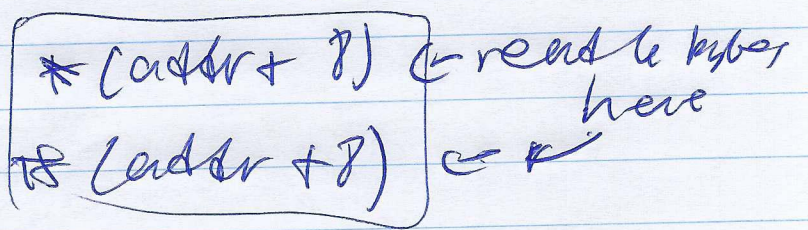 *(addr + 8) ← read 4 bytes
here
*(addr + 8) ←